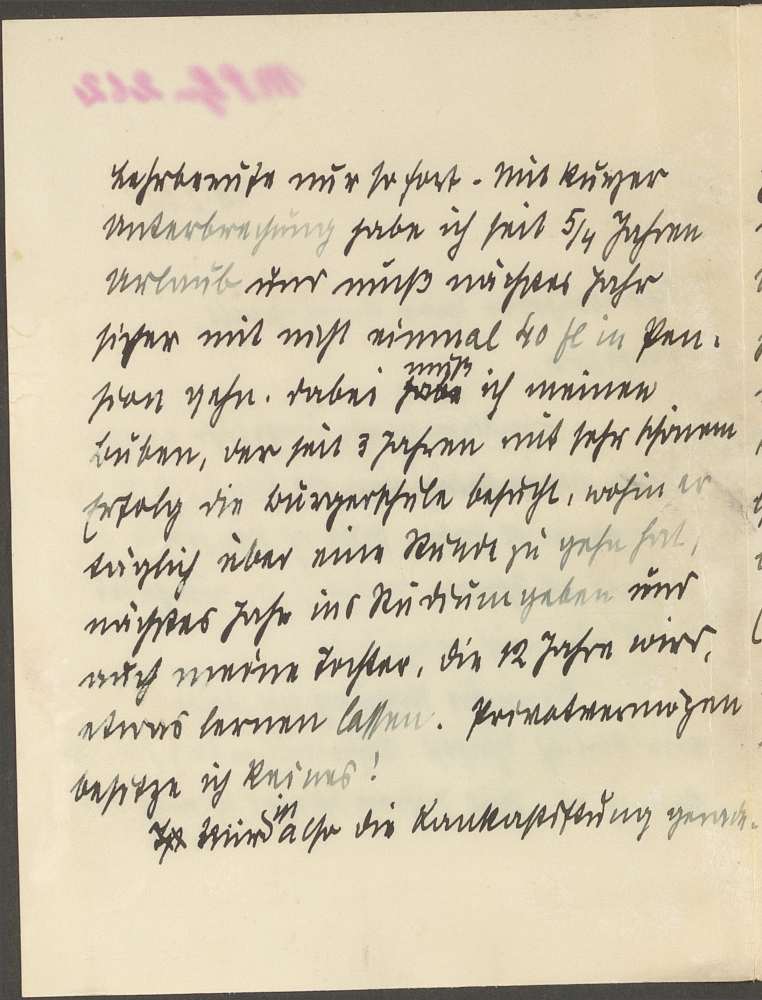 Lehrberufe nur so fort. Mit kurzer
Unterbrechung habe ich seit 5/4 Jahren
Urlaub und muß nächstes Jahr
sicher mit nicht einmal 40 fl in Pen-
sion gehn. Dabei muß ich meinen
Buben, der seit 3 Jahren mit sehr schönem
Erfolg die Bürgerschule besucht, wohin er
täglich über eine Stunde zu gehn hat,
nächstes Jahr ins Studium geben und
auch meine Tochter, die 12 Jahre wird,
etwas lernen lassen. Privatvermögen
besitze ich keines!
würde also die gerade-